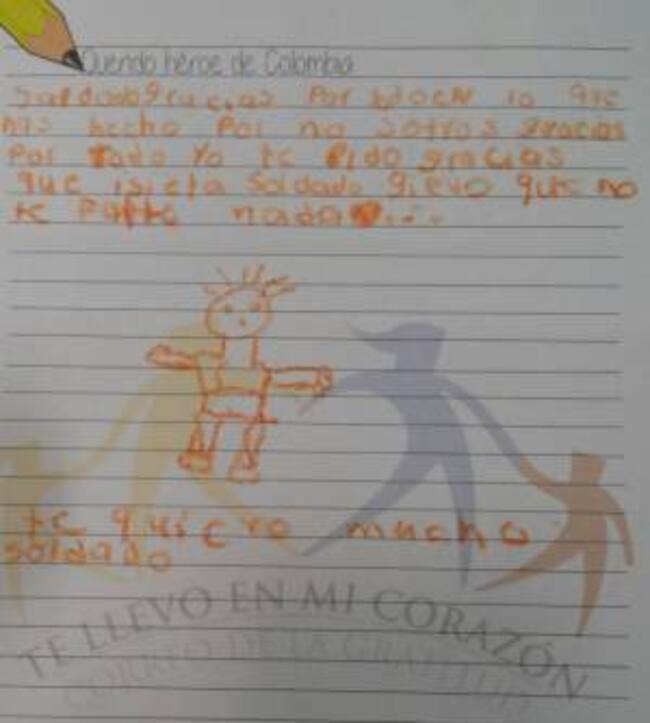 Querido héroe de Colombia
Saldado gracias Por lo que
has hecho Por no sotros gracias
Por todo Yo te Pido gracias
que Soldado qievo que no
te Pase nada
te quicro mucho
soldado
TE LLEVO EN MI CORAZÓN
CORREO DE LA GRATITUD